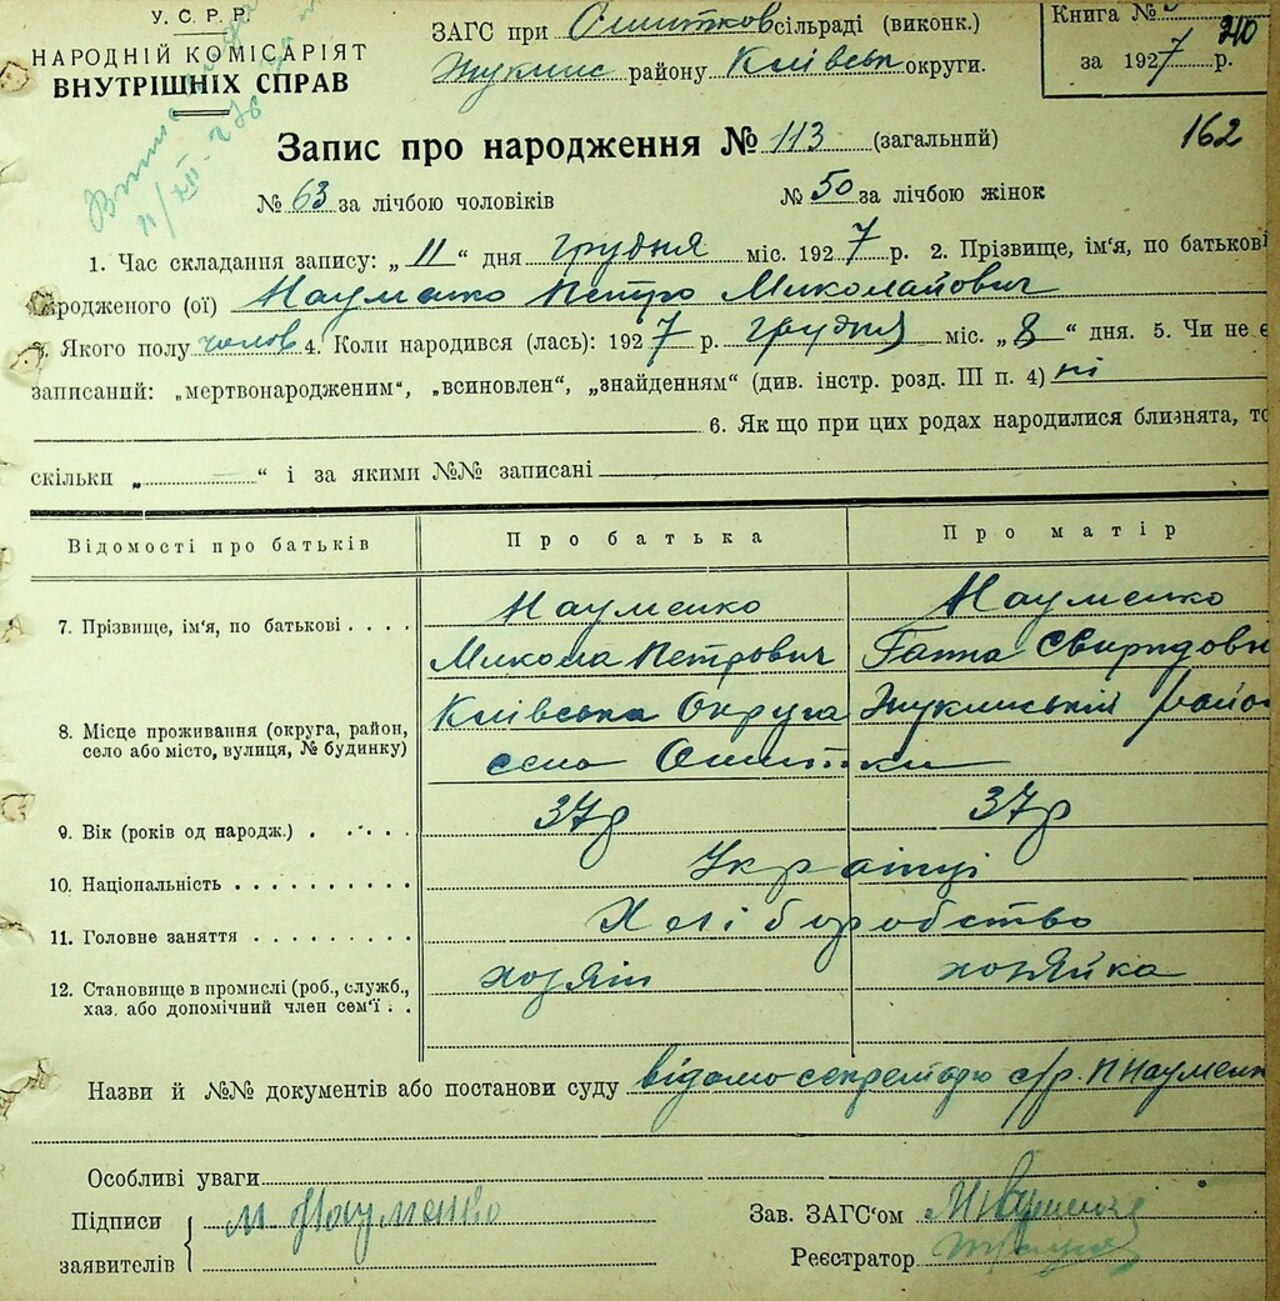 У. С. Р. Р.
НАРОДНІЙ КОМІСАРІЯТ
ВНУТРІШНІХ СПРАВ
ЗАГС при Ошитков сільраді (виконк.)
Жукинс району Київськ округи.
Книга №
за 1927 р.
210
162
Запис про народження № 113 (загальний)
№ 63 за лічбою чоловіків № 50 за лічбою жінок
1. Час складання запису: „11“ дня грудня міс. 1927 р. 2. Прізвище, ім'я, по батькові
народженого (ої) Науменко Петро Миколайович
3. Якого полу чолов 4. Коли народився (лась): 1927 р. грудня міс. „8“ дня. 5. Чи не є
записаний: „мертвонародженим“, „всиновлен“, „знайденням“ (див. інстр. розд. III п. 4) ні
6. Як що при цих родах народилися близнята, то
скільки „ “ і за якими №№ записані
Відомості про батьків Про батька Про матір
7. Прізвище, ім'я, по батькові . . . . Науменко Науменко
Микола Петрович Ганна Свиридовн
8. Місце проживання (округа, район, село або місто, вулиця, № будинку) Київська Округа Жукинський райо
село Ошитки
9. Вік (років од народж.) . . . . . 37р 37р
10. Національність . . . . . . . . . . Українці
11. Головне заняття . . . . . . . . . Хліборобство
12. Становище в промислі (роб., служб., хазяїн хозяйка
хаз. або допомічний член сем'ї . .
Назви й №№ документів або постанови суду відомо секретарю с/р. П Науменк
Особливі уваги
Підписи заявителів М Науменко
Зав. ЗАГС'ом
Реєстратор